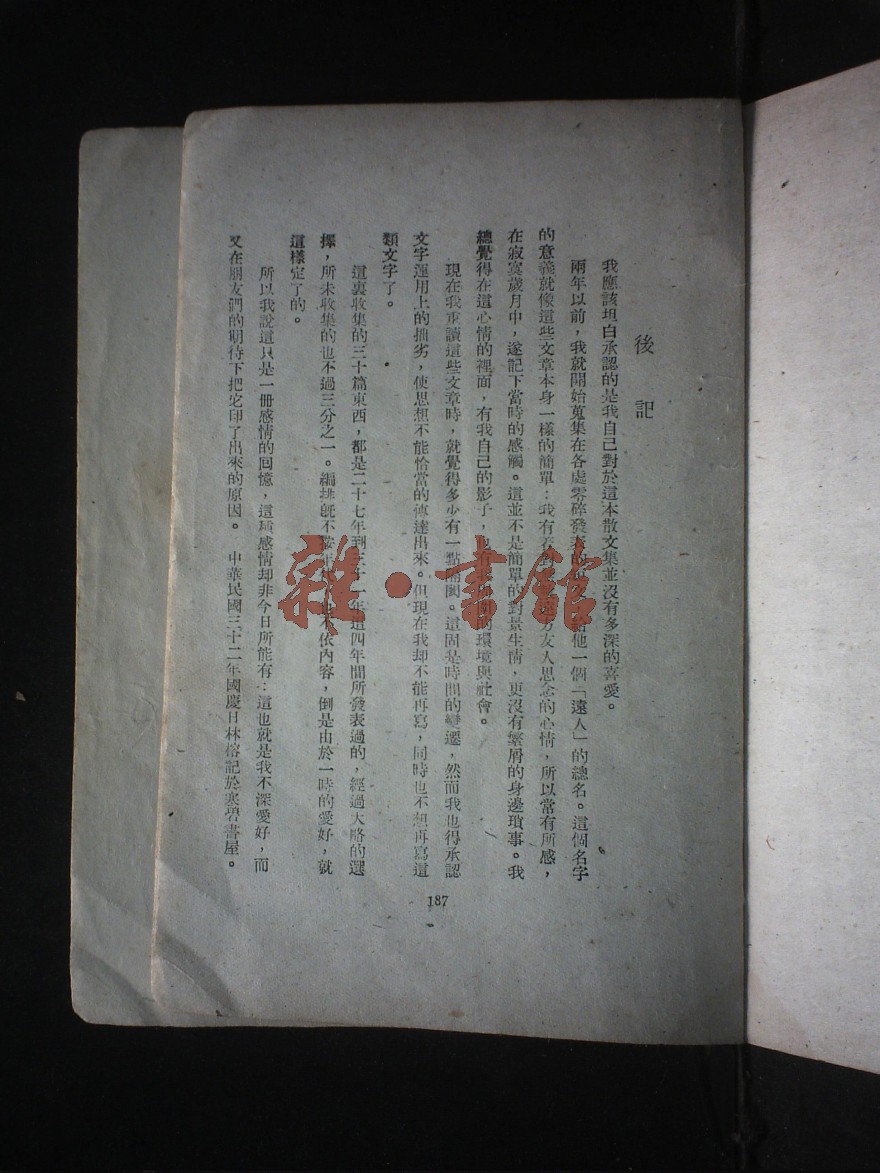 後記
我應該坦白承認的是我自己對於這本散文集並沒有多深的喜愛。
兩年以前，我就開始蒐集在各處零碎發表的 給他一個「遠人」的總名。這個名字
的意義就像這些文章本身一樣的簡單：我有着對 方友人思念的心情，所以常有所感，
在寂寞歲月中，遂記下當時的感觸。這並不是簡單的對景生情，更沒有繁屑的身邊瑣事。我
總覺得在這心情的裡面，有我自己的影子，也有我 的環境與社會。
現在我重讀這些文章時，就覺得多少有一點隔閡。這固是時間的變遷，然而我也得承認
文字運用上的拙劣，使思想不能恰當的傳達出來。但現在我却不能再寫，同時也不想再寫這
類文字了。
這裏收集的三十篇東西，都是二十七年到三十一年這四年間所發表過的，經過大略的選
擇，所未收集的也不過三分之一。編排旣不按 也不依內容，倒是由於一時的愛好，就
這樣定了的。
所以我說這只是一冊感情的回憶，這種感情却非今日所能有：這也就是我不深愛好，而
又在朋友們的期待下把它印了出來的原因。 中華民國三十二年國慶日林榕記於寒碧書屋。
187
雜·書館